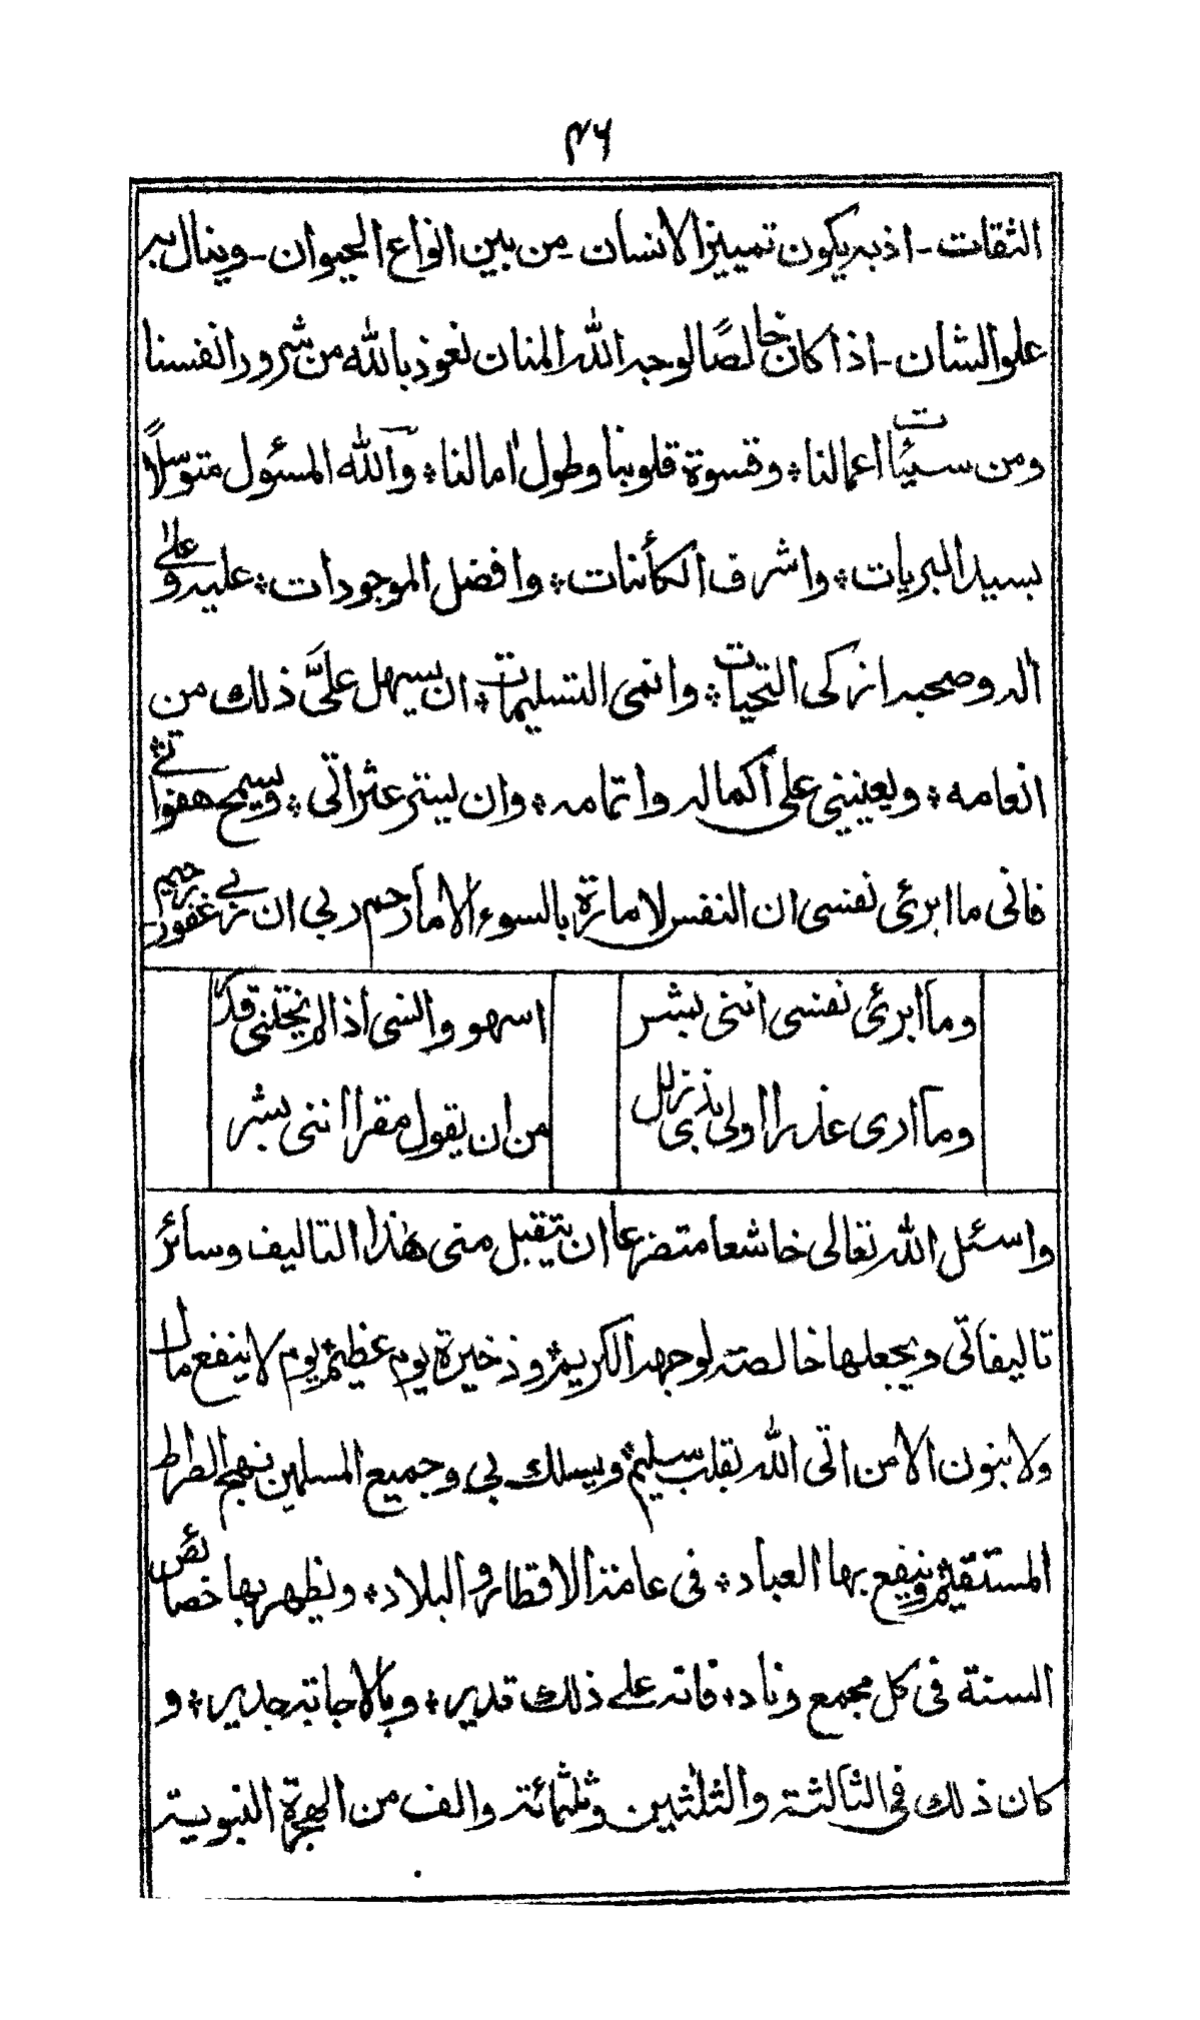 ٤٦
الثقات - اذ به يكون تمييز الانسان - من بين انواع الحيوان - وينال به
علو الشان - اذا كان خالصًا لوجه الله المنان نعوذ بالله من شرور انفسنا
ومن سيئات اعمالنا ؞ وقسوة قلوبنا وطول اٰمالنا ؞ وآلله المسئول متوسلاً
بسيد البريات ؞ واشرف الكأئنات ؞ وافضل الموجودات ؞ عليه وعلىٰ
اٰله وصحبه ازكى التحيات ؞ وانمى التسليمات ؞ ان يسهل علىَّ ذلك من
انعامه ؞ ويعينني على اكماله واتمامه ؞ وان يستر عثراتى ؞ ويسمح هفواتى ؞
فانى ما ابرئ نفسى ان النفس لامارة بالسوء الا ما رحم ربي ان ربي غفور رحيم
وما ابرئ نفسى اننى بشر
اسهو وانسى اذا لم يحمنى قدر
وما ارى عذرا اولى بذى زلل
من ان يقول مقرا اننى بشر
واسئل الله تعالى خاشعا متضرعا ان يتقبل منى هٰذا التاليف وسائر
تاليفاتى ويجعلها خالصة لوجهه الكريم ؞ وذخيرة يوم عظيم ؞ يوم لا ينفع مال
ولا بنون الا من اتى الله بقلب سليم ؞ ويسلك بي وجميع المسلمين نهج الصراط
المستقيم ؞ وينفع بها العباد ؞ فى عامة الاقطار والبلاد ؞ ويظهر بها خصائص
السنة فى كل مجمع وناد ؞ فانه على ذلك قدير ؞ وبالاجابة جدير ؞ و
كان ذلك فى الثالثة والثلٰثين وثلٰثمائة والف من الهجرة النبوية